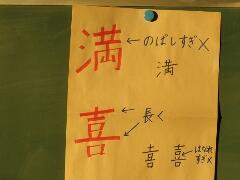 満
←のばしすぎ×
満
喜
長く
喜 喜
←はなれ
すぎ×